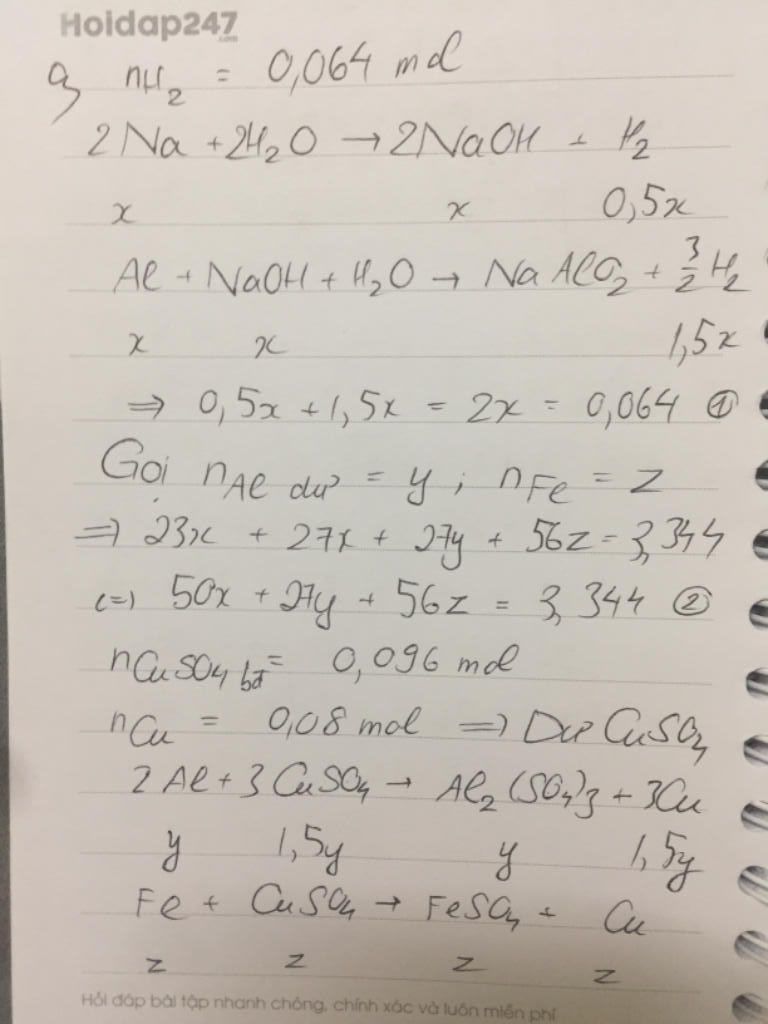 Hoidap247
.com
a, nH₂ = 0,064 mol
2Na + 2H₂O → 2NaOH + H₂
x x 0,5x
Al + NaOH + H₂O → NaAlO₂ + 3/2 H₂
x x 1,5x
⇒ 0,5x + 1,5x = 2x = 0,064 ①
Gọi nAl dư = y ; nFe = z
⇒ 23x + 27x + 27y + 56z = 3,344
(=) 50x + 27y + 56z = 3,344 ②
nCuSO₄ bđ = 0,096 mol
nCu = 0,08 mol ⇒ Dư CuSO₄
2Al + 3CuSO₄ → Al₂(SO₄)₃ + 3Cu
y 1,5y y 1,5y
Fe + CuSO₄ → FeSO₄ + Cu
z z z z
Hỏi đáp bài tập nhanh chóng, chính xác và luôn miễn phí